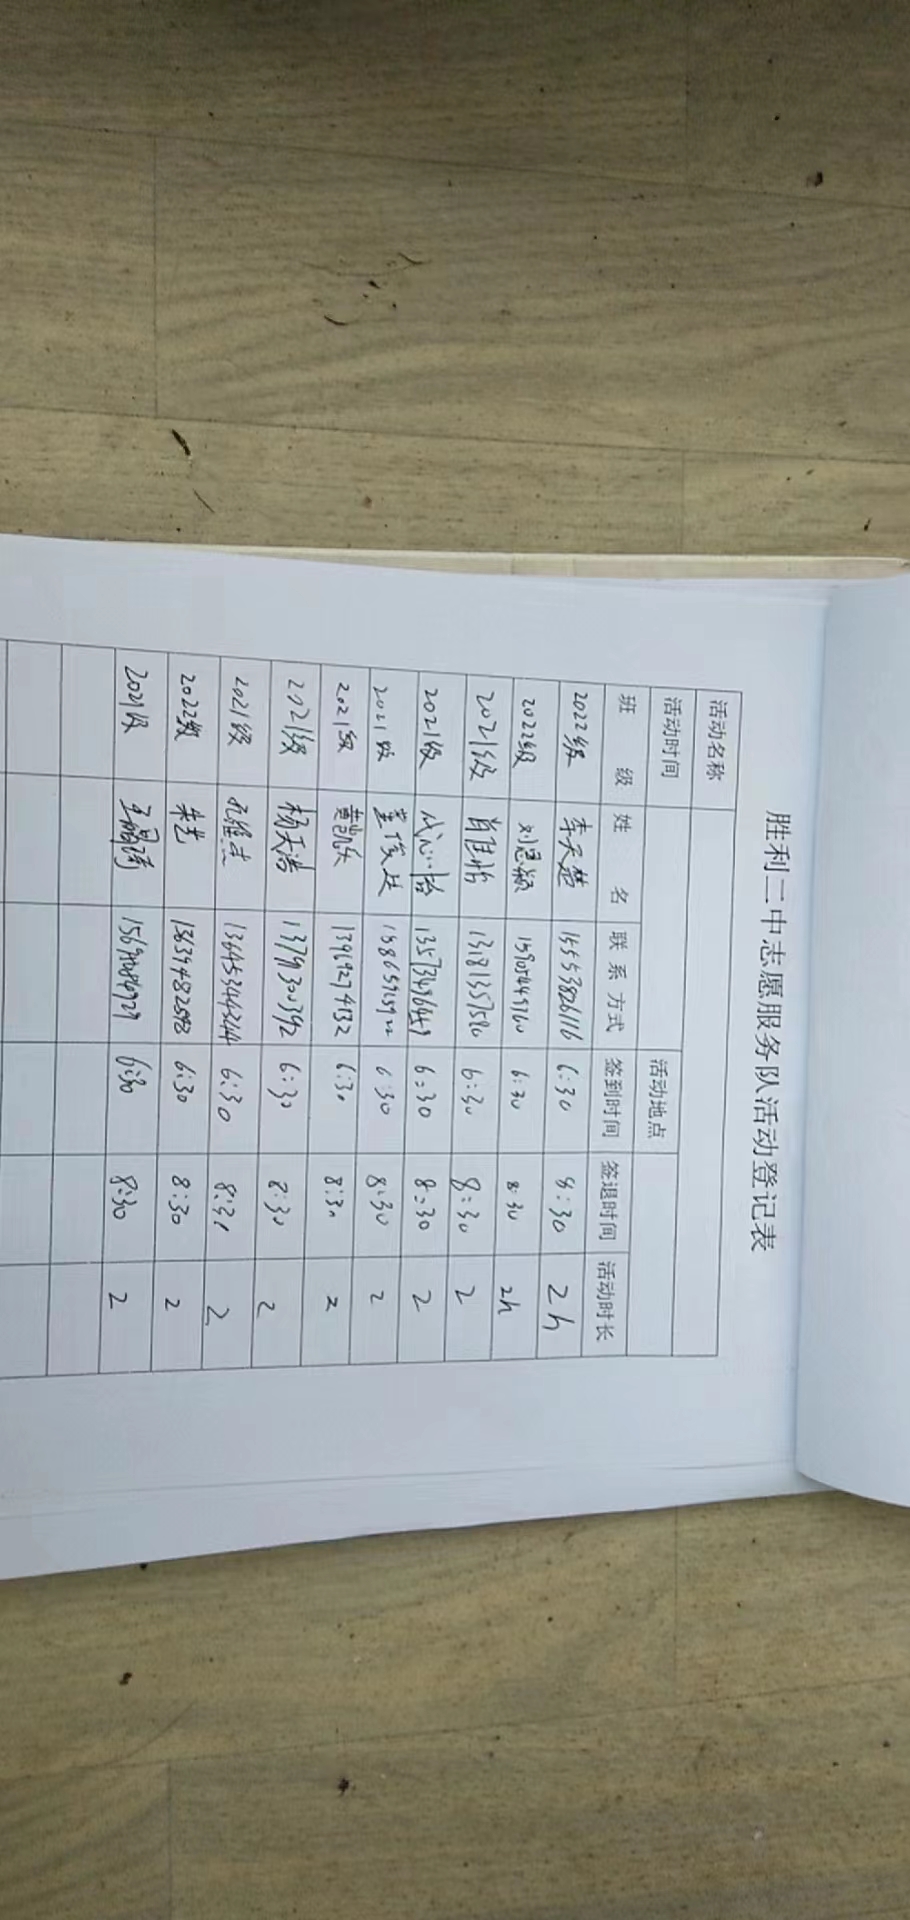 胜利二中志愿服务队活动登记表
活动名称
活动时间 活动地点
班 级 姓 名 联系方式 签到时间 签退时间 活动时长
2022级 李天楚 15553826116 6:30 8:30 2h
2022级 刘恩颖 15905449760 6:30 8:30 2h
2021级 肖佳怡 13181357590 6:30 8:30 2
2021级 代心怡 13573496449 6:30 8:30 2
2021级 董俊廷 6:30 8:30 2
2021级 黄凯 13969274132 6:30 8:30 2
2021级 杨天浩 6:30 8:30 2
2021级 孔维 6:30 8:30 2
2022级 朱 6:30 8:30 2
2021级 王 6:30 8:30 2